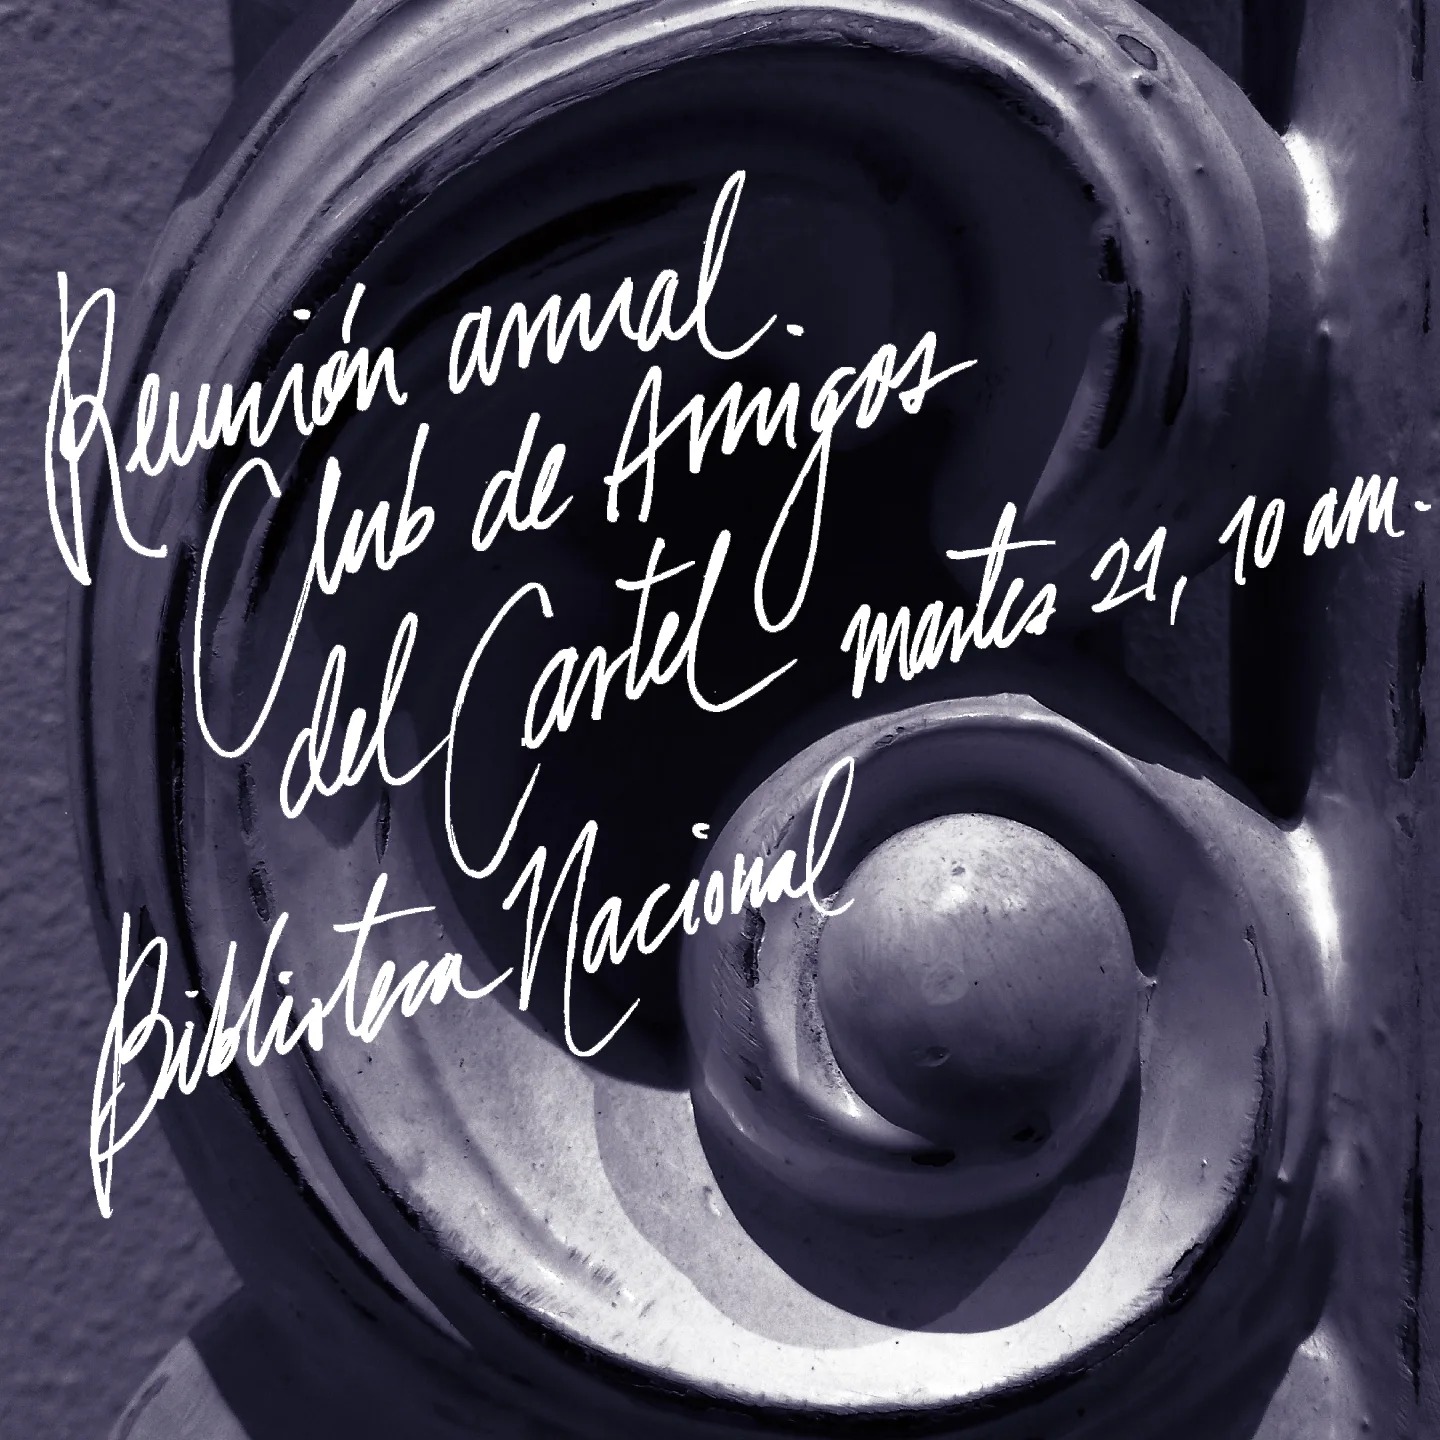 Reunión anual.
Club de Amigos
del Cartel
martes 21, 10 am.
Biblioteca Nacional